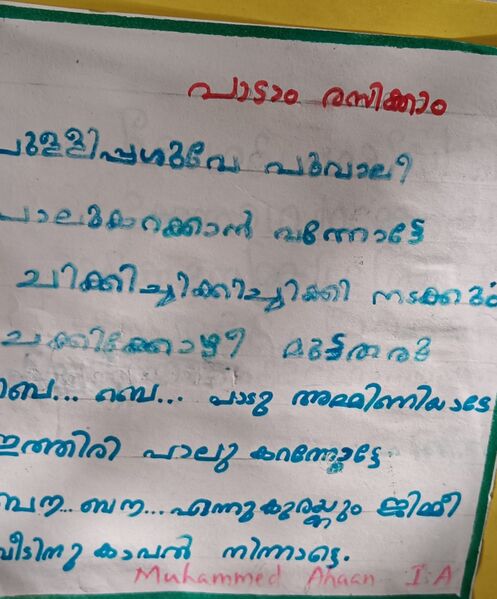 പാടാം രസിക്കാം
പുള്ളിപ്പശുവേ പൂവാലീ
പാലുകറക്കാൻ വന്നോട്ടേ
ചിക്കിച്ചിക്കിച്ചിക്കി നടക്കും
ചക്കിക്കോഴീ മുട്ടതരൂ
ബെ... ബെ... പാടൂ അമ്മിണിയാടേ
ഇത്തിരി പാലു കറന്നോട്ടേ
ബൗ...ബൗ...എന്നുകുരയ്ക്കും ജിമ്മീ
വീടിനു കാവൽ നിന്നാട്ടെ.
Muhammed Ahaan I A